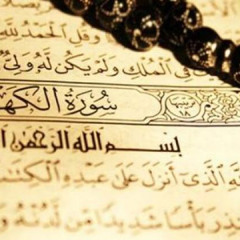 وَقُلِ الْحَمْدُ لِلَّهِ
فِي الْمُلْكِ وَلَمْ يَكُن لَّهُ وَلِيٌّ
سُورَةُ الكَهْ ترتيبها ١٨
بِسْمِ اللَّهِ الرَّحْمَنِ
لَّهِ الَّذِي أَنزَلَ عَلَى عَبْدِهِ الْكِتَ
نذِرَ بَأْسًا شَدِيدًا مِّن لَّدُنْهُ وَ